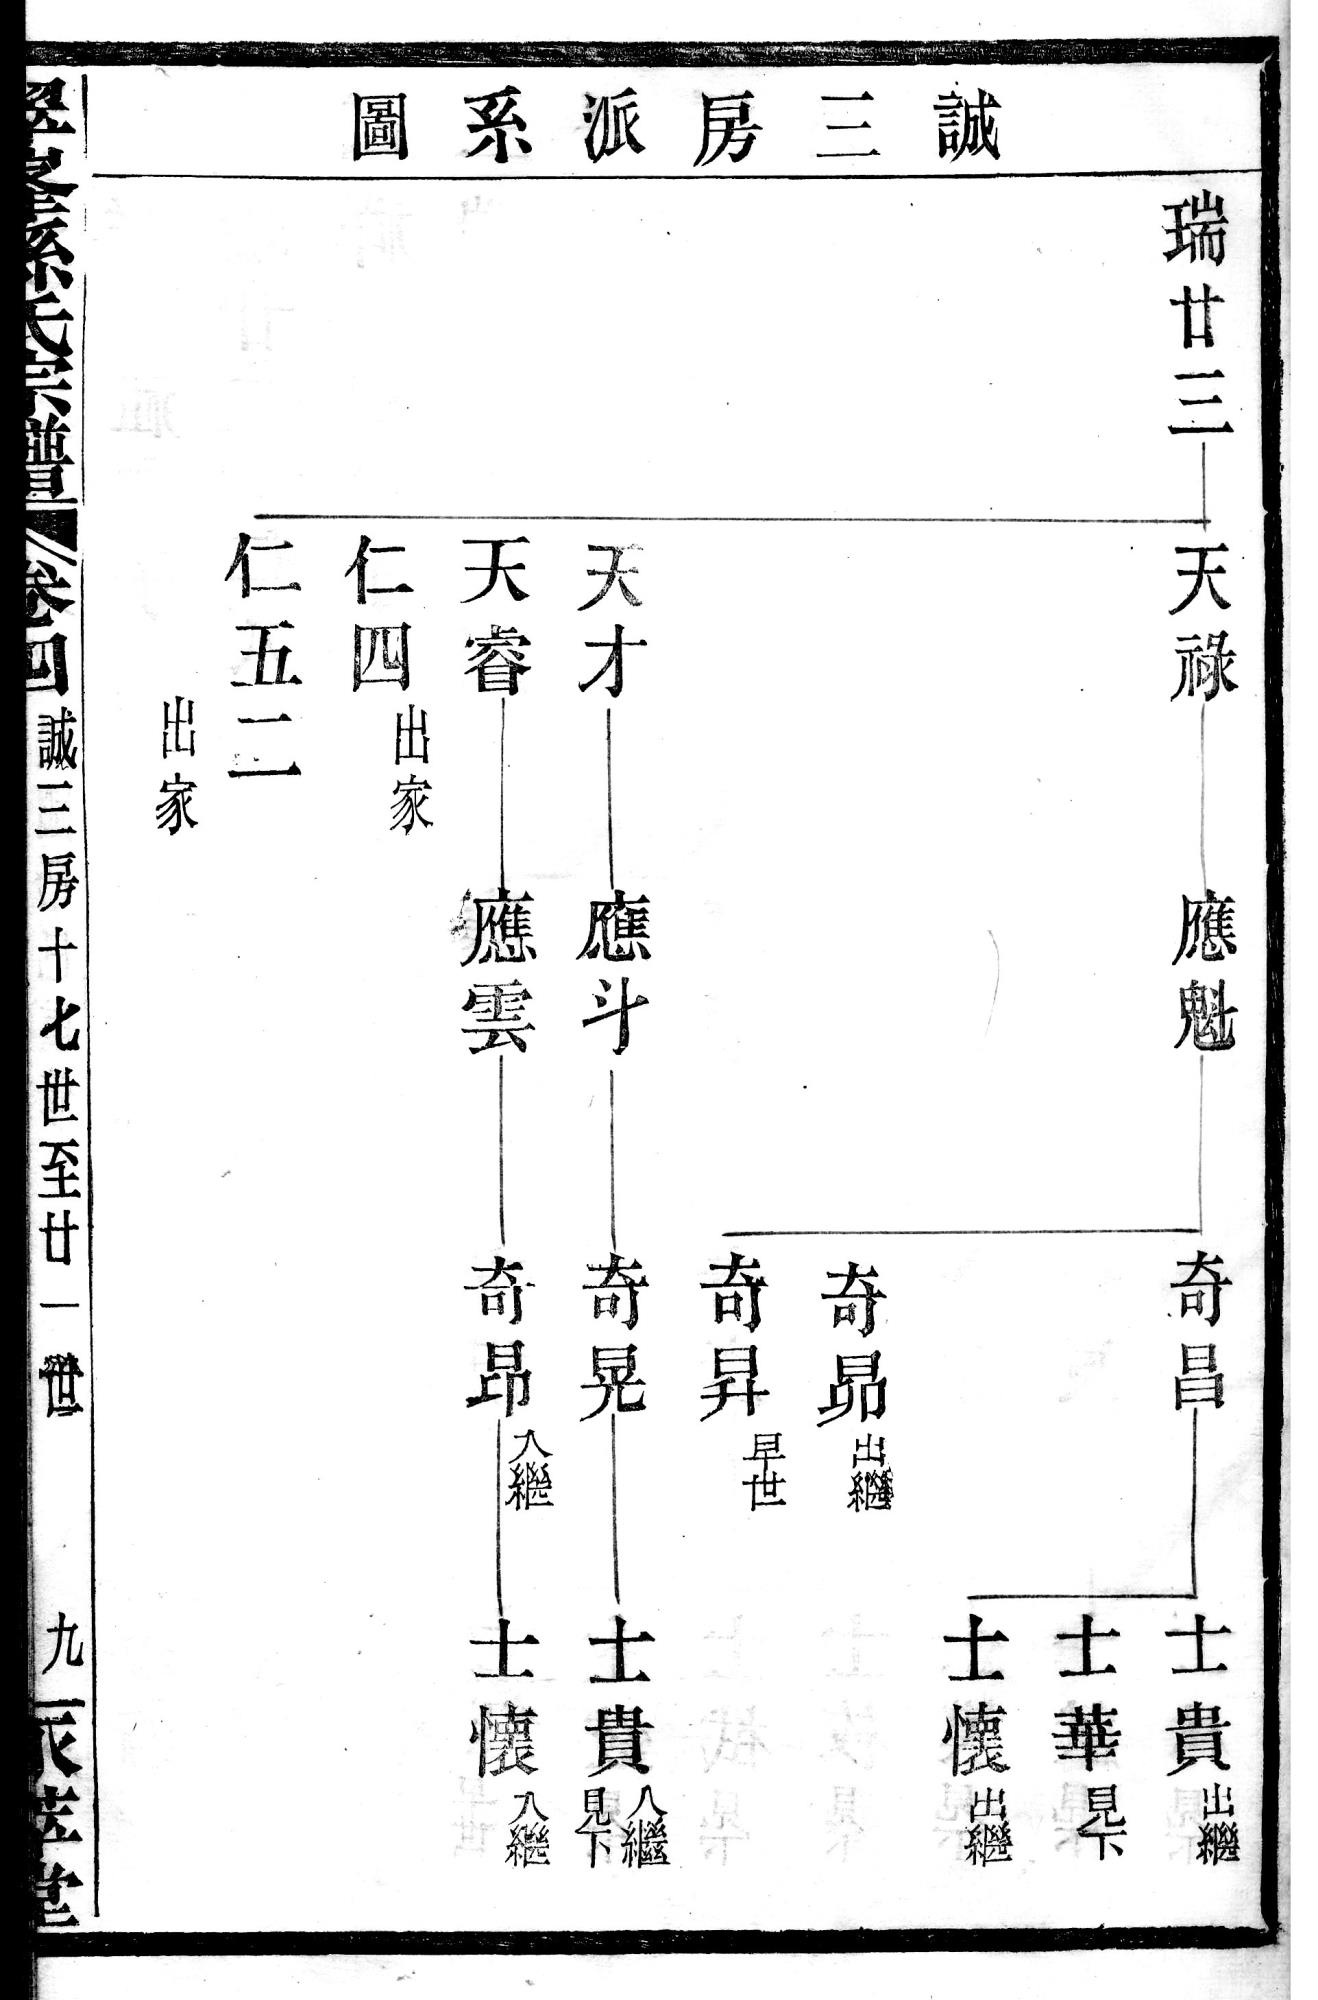 誠三房派系圖
瑞廿三
天祿
天才
天睿
仁四
出家
仁五二
出家
應魁
應斗
應雲
奇昌
奇昴
出繼
奇昇
早世
奇晃
奇昂
入繼
士貴
出繼
士華
見下
士懷
出繼
士貴
入繼
見下
士懷
入繼
孫氏宗譜
卷四
誠三房十七世至廿一世
九